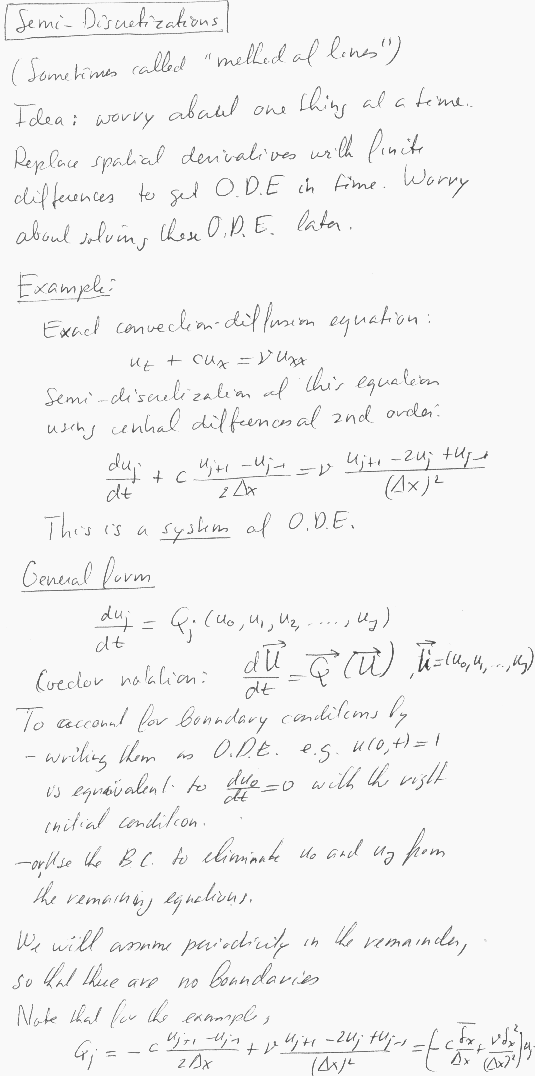 Semi-Discretizations
(Sometimes called "method of lines")
Idea: worry about one thing at a time.
Replace spatial derivatives with finite
differences to get O.D.E in time. Worry
about solving these O.D.E. later.
Example:
Exact convection-diffusion equation:
u_t + cu_x = νu_xx
Semi-discretization of this equation
using central differences of 2nd order:
du_j/dt + c (u_{j+1} - u_{j-1})/(2Δx) = ν (u_{j+1} - 2u_j + u_{j-1})/(Δx)²
This is a system of O.D.E.
General form
du_j/dt = Q_j (u_0, u_1, u_2, ...., u_J)
(vector notation: dU⃗/dt = Q⃗(U⃗), u⃗=(u_0,u_1,...,u_J)
To account for boundary conditions by
- writing them as O.D.E. e.g. u(0,t)=1
is equivalent to du_0/dt=0 with the right
initial condition.
- or use the B.C. to eliminate u_0 and u_J from
the remaining equations.
We will assume periodicity in the remainder,
so that there are no boundaries
Note that for the example,
Q_j = -c (u_{j+1} - u_{j-1})/(2Δx) + ν (u_{j+1} - 2u_j + u_{j-1})/(Δx)² = (-c δ̅_x/Δx + νδ_x²/(Δx)²)u_j